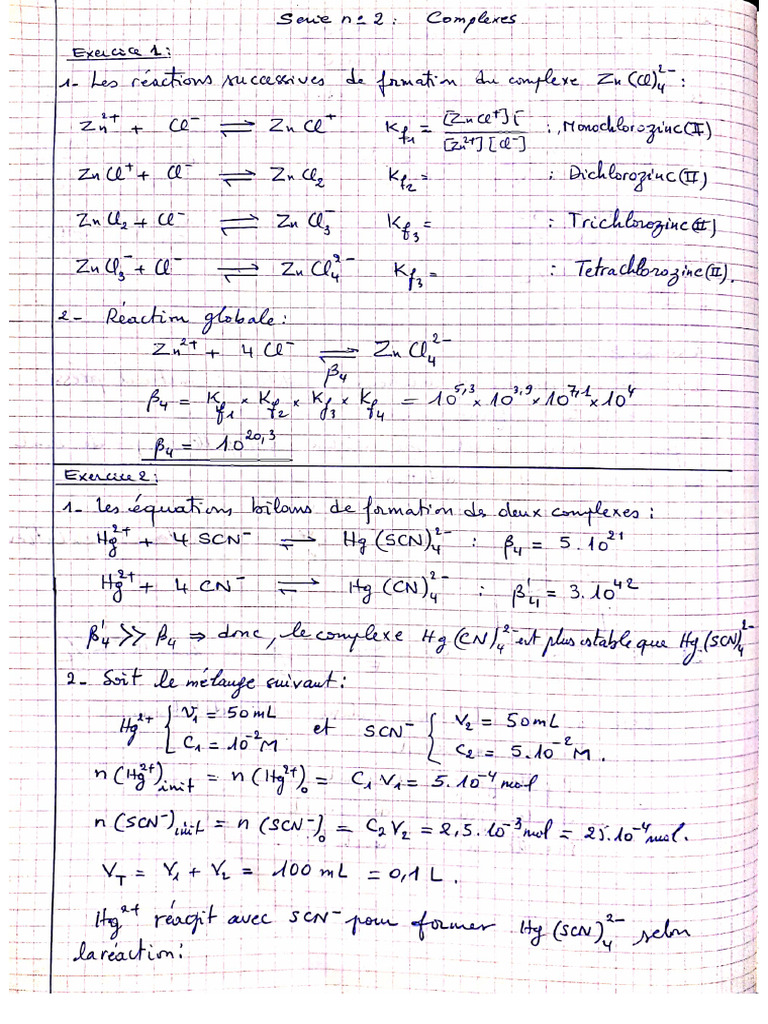 Serie n° 2 : Complexes
Exercice 1 :
1- Les réactions successives de formation du complexe Zn(Cl)₄²⁻ :
Zn²⁺ + Cl⁻ ⇌ ZnCl⁺ Kf₁ = [ZnCl⁺][ / [Zn²⁺][Cl⁻] : Monochlorozinc(II)
ZnCl⁺ + Cl⁻ ⇌ ZnCl₂ Kf₂ = : Dichlorozinc(II)
ZnCl₂ + Cl⁻ ⇌ ZnCl₃⁻ Kf₃ = : Trichlorozinc(II)
ZnCl₃⁻ + Cl⁻ ⇌ ZnCl₄²⁻ Kf₃ = : Tetrachlorozinc(II).
2- Réaction globale :
Zn²⁺ + 4 Cl⁻ ⇌ ZnCl₄²⁻
β₄
β₄ = Kf₁ × Kf₂ × Kf₃ × Kf₄ = 10^5,3 × 10^3,9 × 10^7,1 × 10^4
β₄ = 10^20,3
Exercice 2 :
1- Les équations bilans de formation des deux complexes :
Hg²⁺ + 4 SCN⁻ ⇌ Hg(SCN)₄²⁻ : β₄ = 5.10²¹
Hg²⁺ + 4 CN⁻ ⇌ Hg(CN)₄²⁻ : β'₄ = 3.10⁴²
β'₄ >> β₄ ⇒ donc, le complexe Hg(CN)₄²⁻ est plus stable que Hg(SCN)₄²⁻
2- Soit le mélange suivant :
Hg²⁺ { V₁ = 50 mL et SCN⁻ { V₂ = 50 mL
C₁ = 10⁻² M C₂ = 5.10⁻² M.
n(Hg²⁺)init = n(Hg²⁺)₀ = C₁V₁ = 5.10⁻⁴ mol
n(SCN⁻)init = n(SCN⁻)₀ = C₂V₂ = 2,5.10⁻³ mol = 25.10⁻⁴ mol.
V_T = V₁ + V₂ = 100 mL = 0,1 L.
Hg²⁺ réagit avec SCN⁻ pour former Hg(SCN)₄²⁻ selon
la réaction :